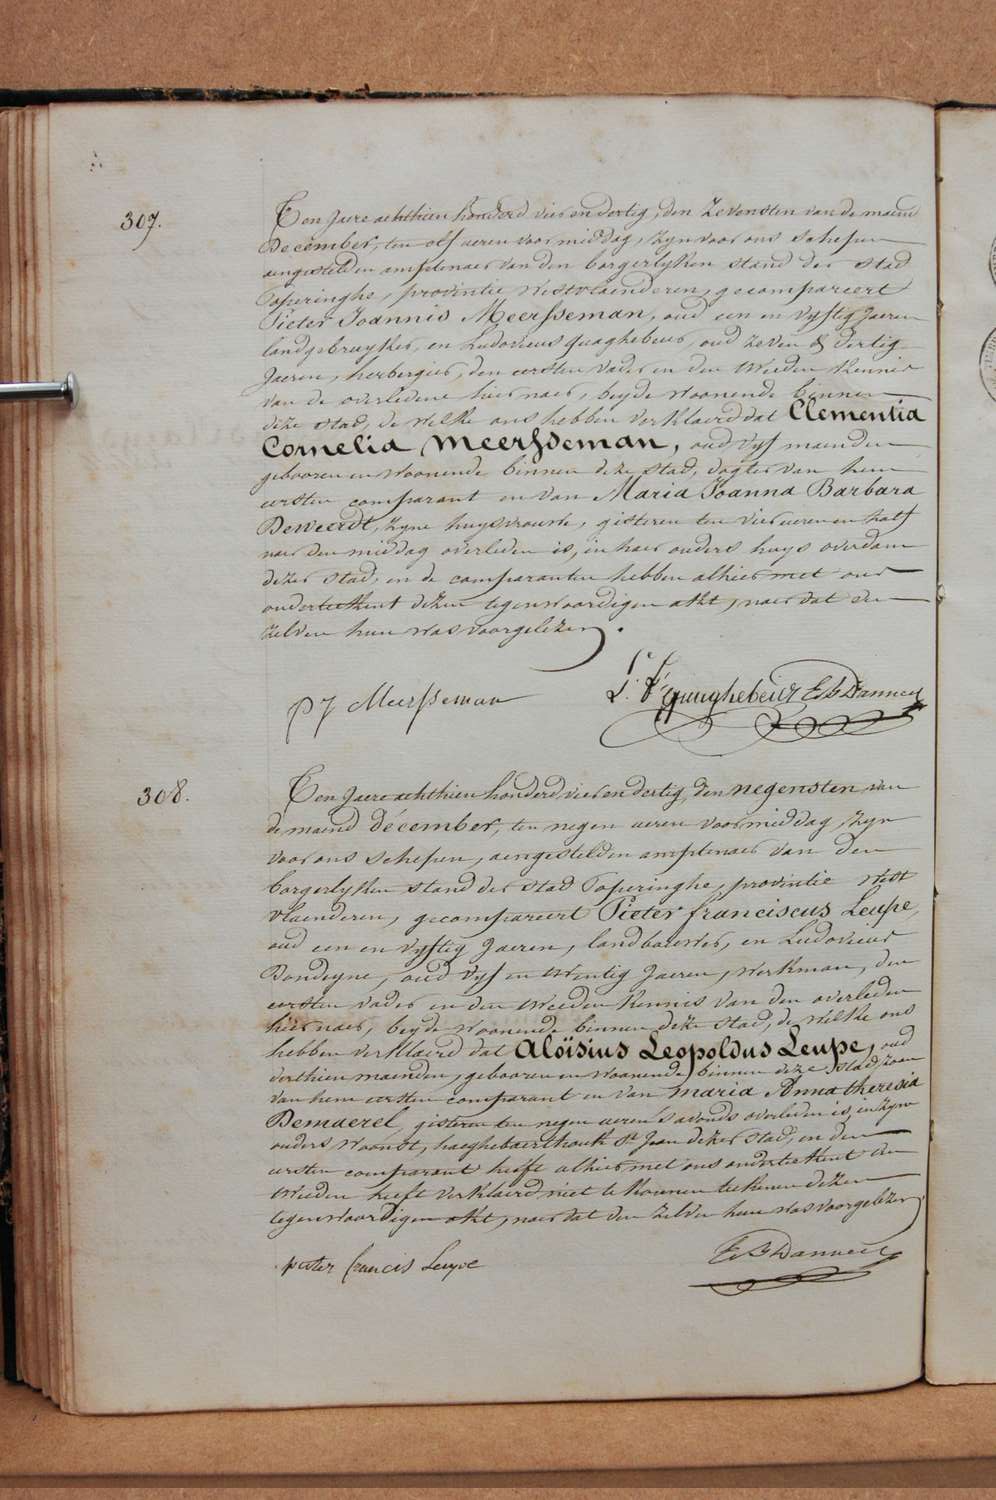 307.
Ten Jaere achthien honderd vier en dertig, den Zevensten van de maend
December, ten elf ueren voor middag, zyn voor ons schepen
aengestelden amptenaer van den borgerlyken stand der stad
Poperinghe, provintie Westvlaenderen, gecompareert
Pieter Joannis Meersseman, oud een en vyftig Jaeren
landgebruyker, en Ludovicus Quaghebeur, oud zeven & dertig
Jaeren, herbergier, den eersten vader en den tweeden kennis
van de overledene hier naer, beyde woonende binnen
deze stad, de welke ons hebben verklaerd dat Clementia
Cornelia Meersseman, oud vyf maenden
gebooren en woonende binnen deze stad, dogter van hem
eersten comparant en van Maria Joanna Barbara
Deweerdt, zyne huysvrouw, gisteren ten vier ueren en half
naer den middag overleden is, in haer ouders huys overdam
dezer stad, en de comparanten hebben alhier met ons
onderteekent dezen tegenwoordigen akt, naer dat den
zelven hun was voorgelezen.
p J Meersseman
L. F. Quaghebeur E B Danneel
308.
Ten Jaere achthien honderd, vier en dertig, den negensten van
de maend December, ten negen ueren voormiddag, zyn
voor ons schepen, aengestelden amptenaer van den
borgerlyken stand der stad Poperinghe, provintie West
vlaenderen, gecompareert Pieter franciscus Leupe,
oud een en vyftig Jaeren, landbouwer, en Ludovicus
Dondeyne, oud vyf en twintig Jaeren, werkman, den
eersten vader en den tweeden kennis van den overleden
hier naer, beyde woonende binnen deze stad, de welke ons
hebben verklaerd dat Aloïsius Leopoldus Leupe, oud
derthien maenden, gebooren en woonende binnen deze stad, zoon
van hem eersten comparant en van maria Anna theresia
Demaerel, gisteren ten negen ueren s'avonds overleden is, in zyn
ouders woonst, haeghebaerthoek St Jan dezer stad, en den
eersten comparant heeft alhier met ons onderteekent den
tweeden heeft verklaerd niet te konnen teekenen dezen
tegenwoordigen akt, naer dat den zelven hun was voorgelezen
pieter francis Leupe
E B Danneel